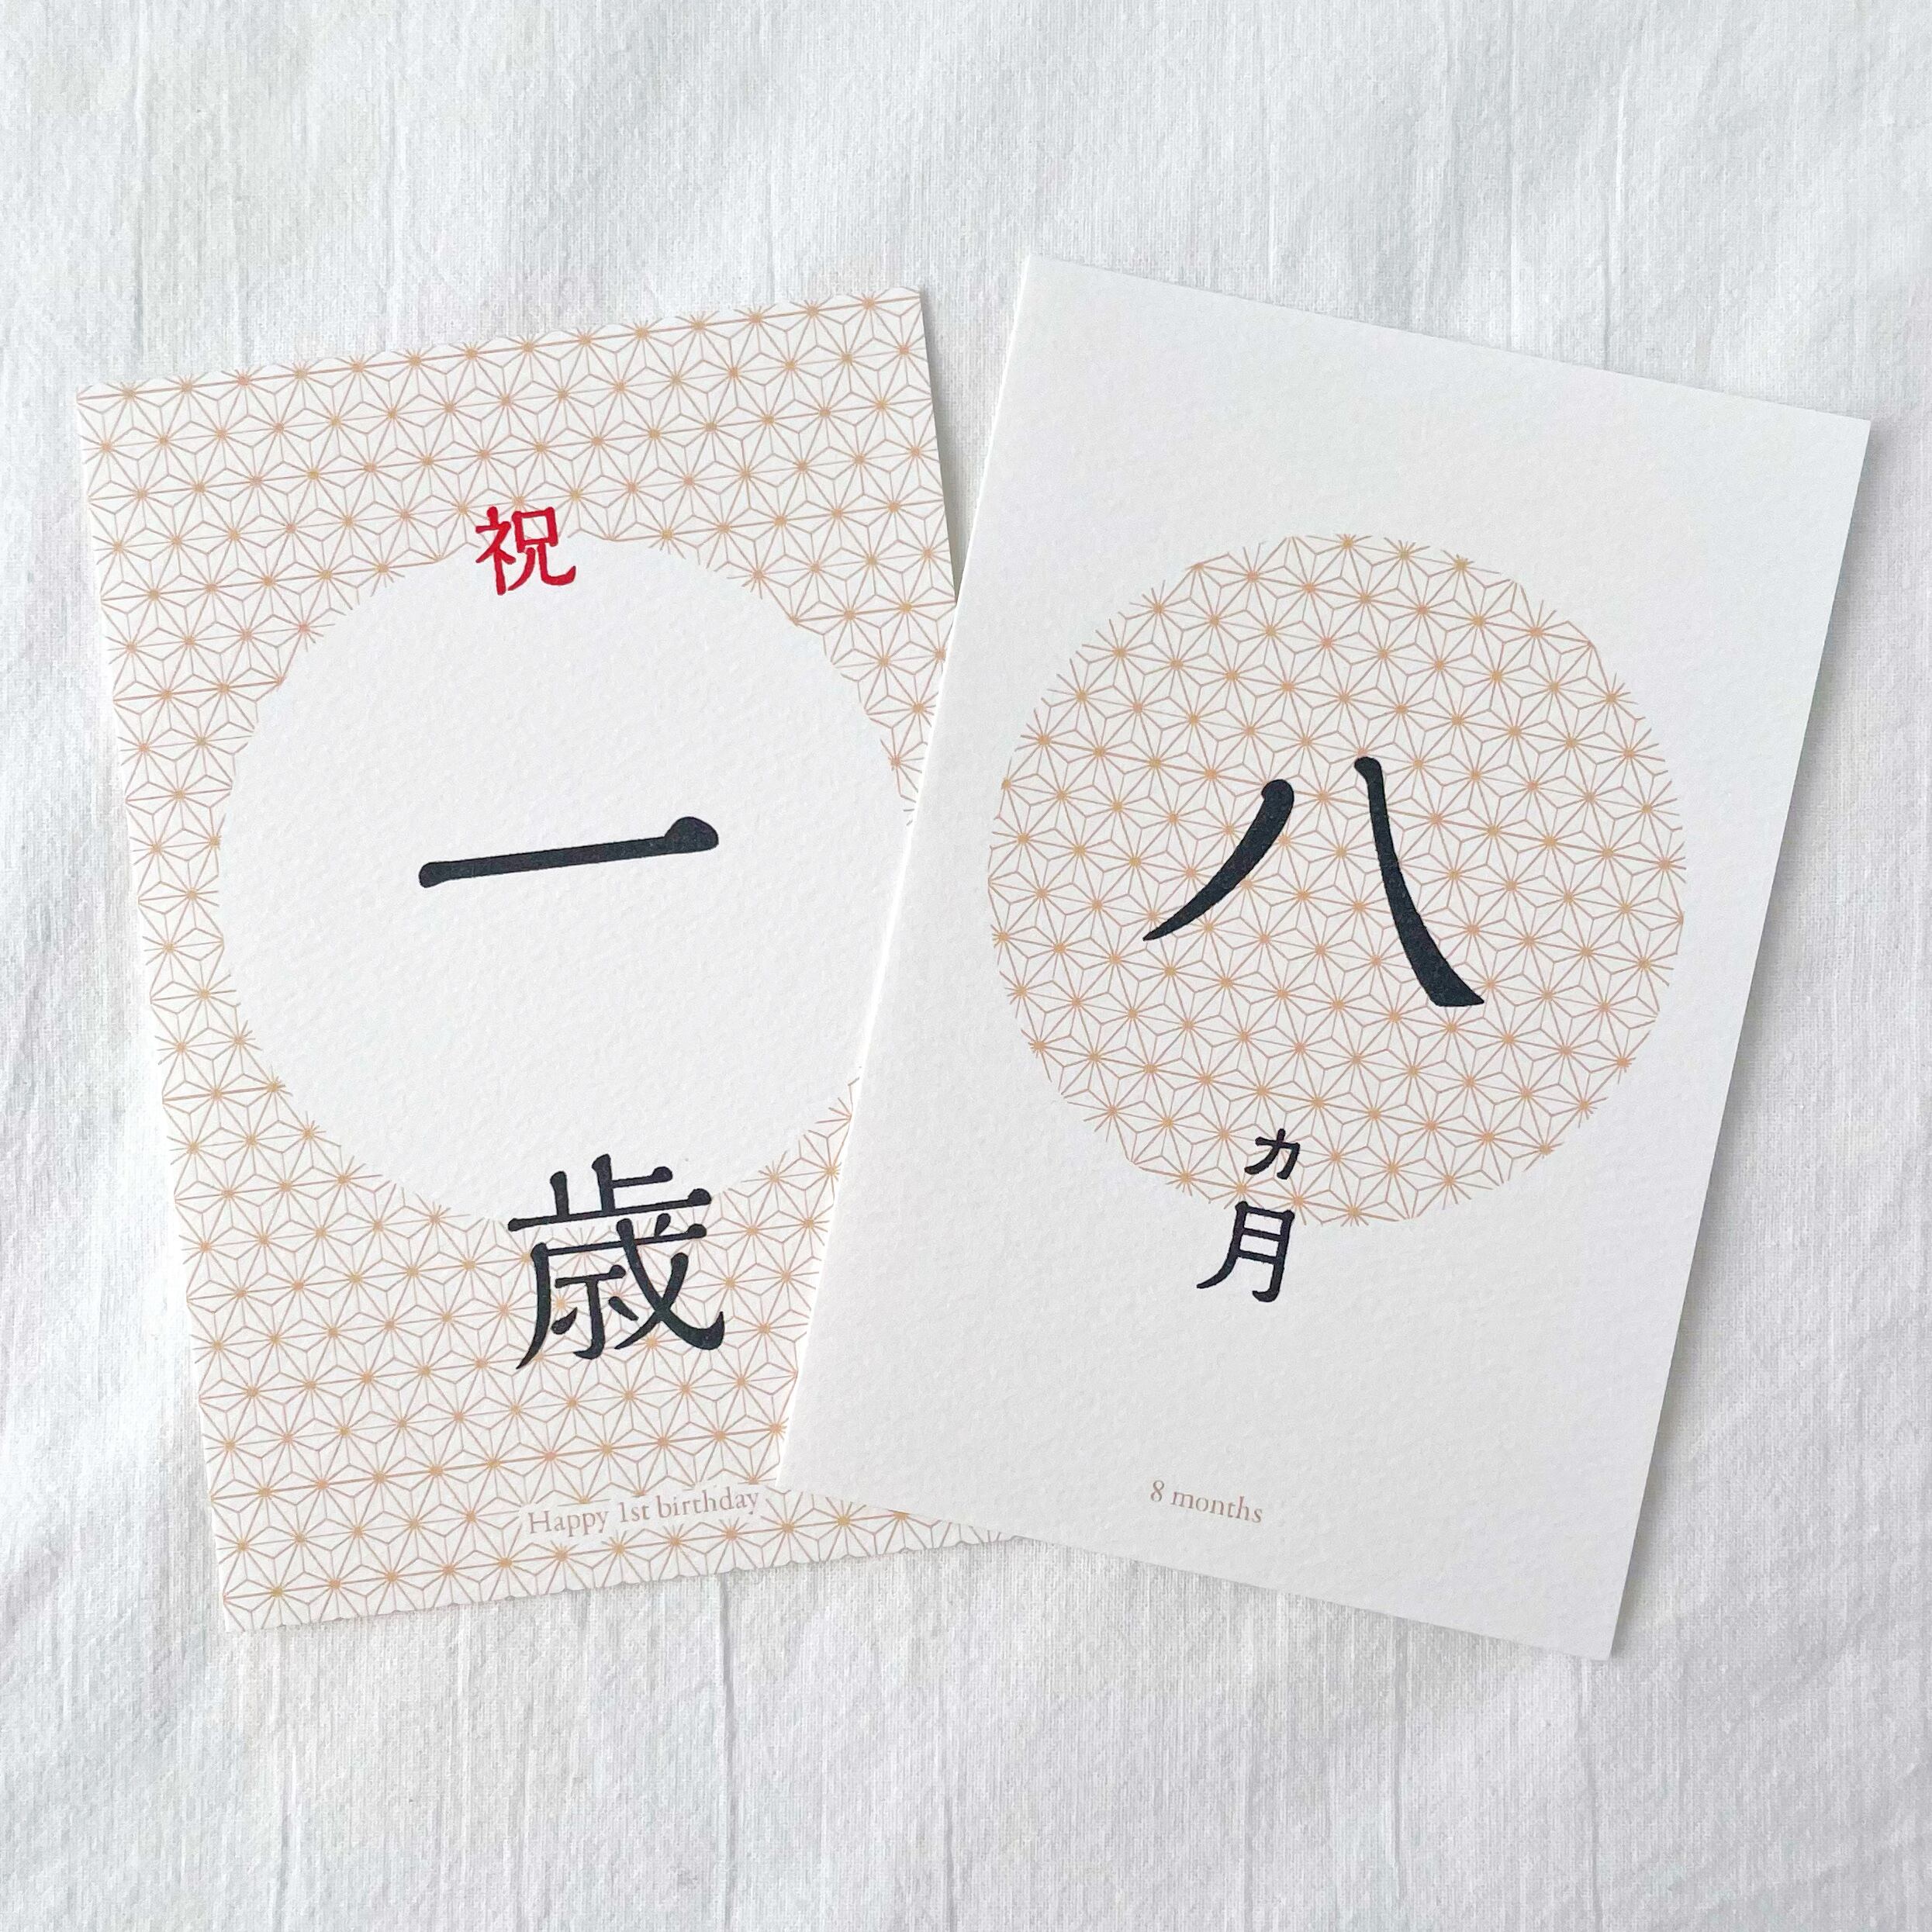 祝
一
歳
Happy 1st birthday
八
カ
月
8 months